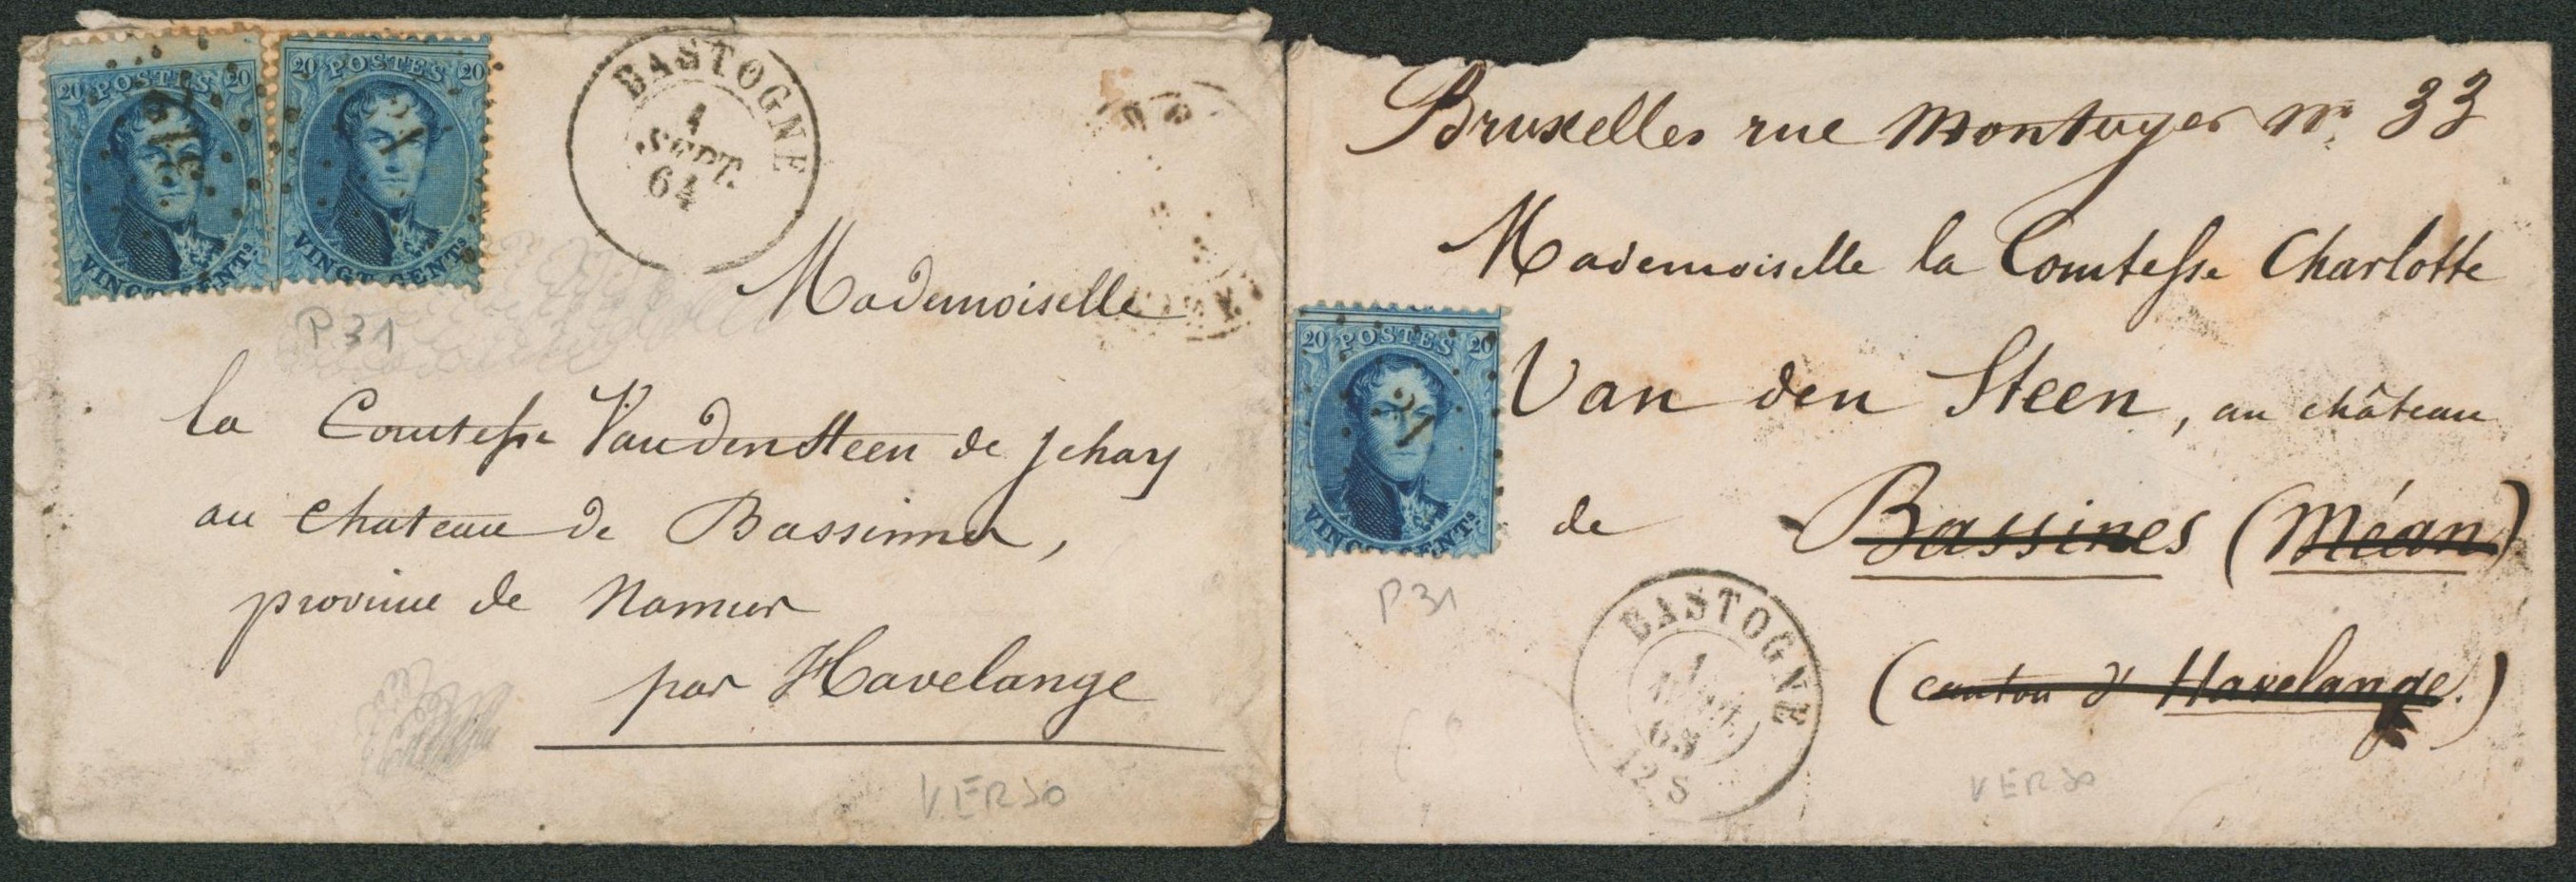 20 POSTES 20
31
VINGT CENTS
20 POSTES 20
31
VINGT CENTS
BASTOGNE
1
SEPT.
64
P31
Mademoiselle
la Comtesse Vandensteen de Jehay
au chateau de Bassinnes,
province de Namur
par Havelange
VERSO
Bruxelles rue Montoyer n° 33
Mademoiselle la Comtesse Charlotte
20 POSTES 20
31
VINGT CENTS
Van den Steen, au château
de Bassines (Méan)
P31
BASTOGNE
1
12 S
(canton d'Havelange.)
VERSO